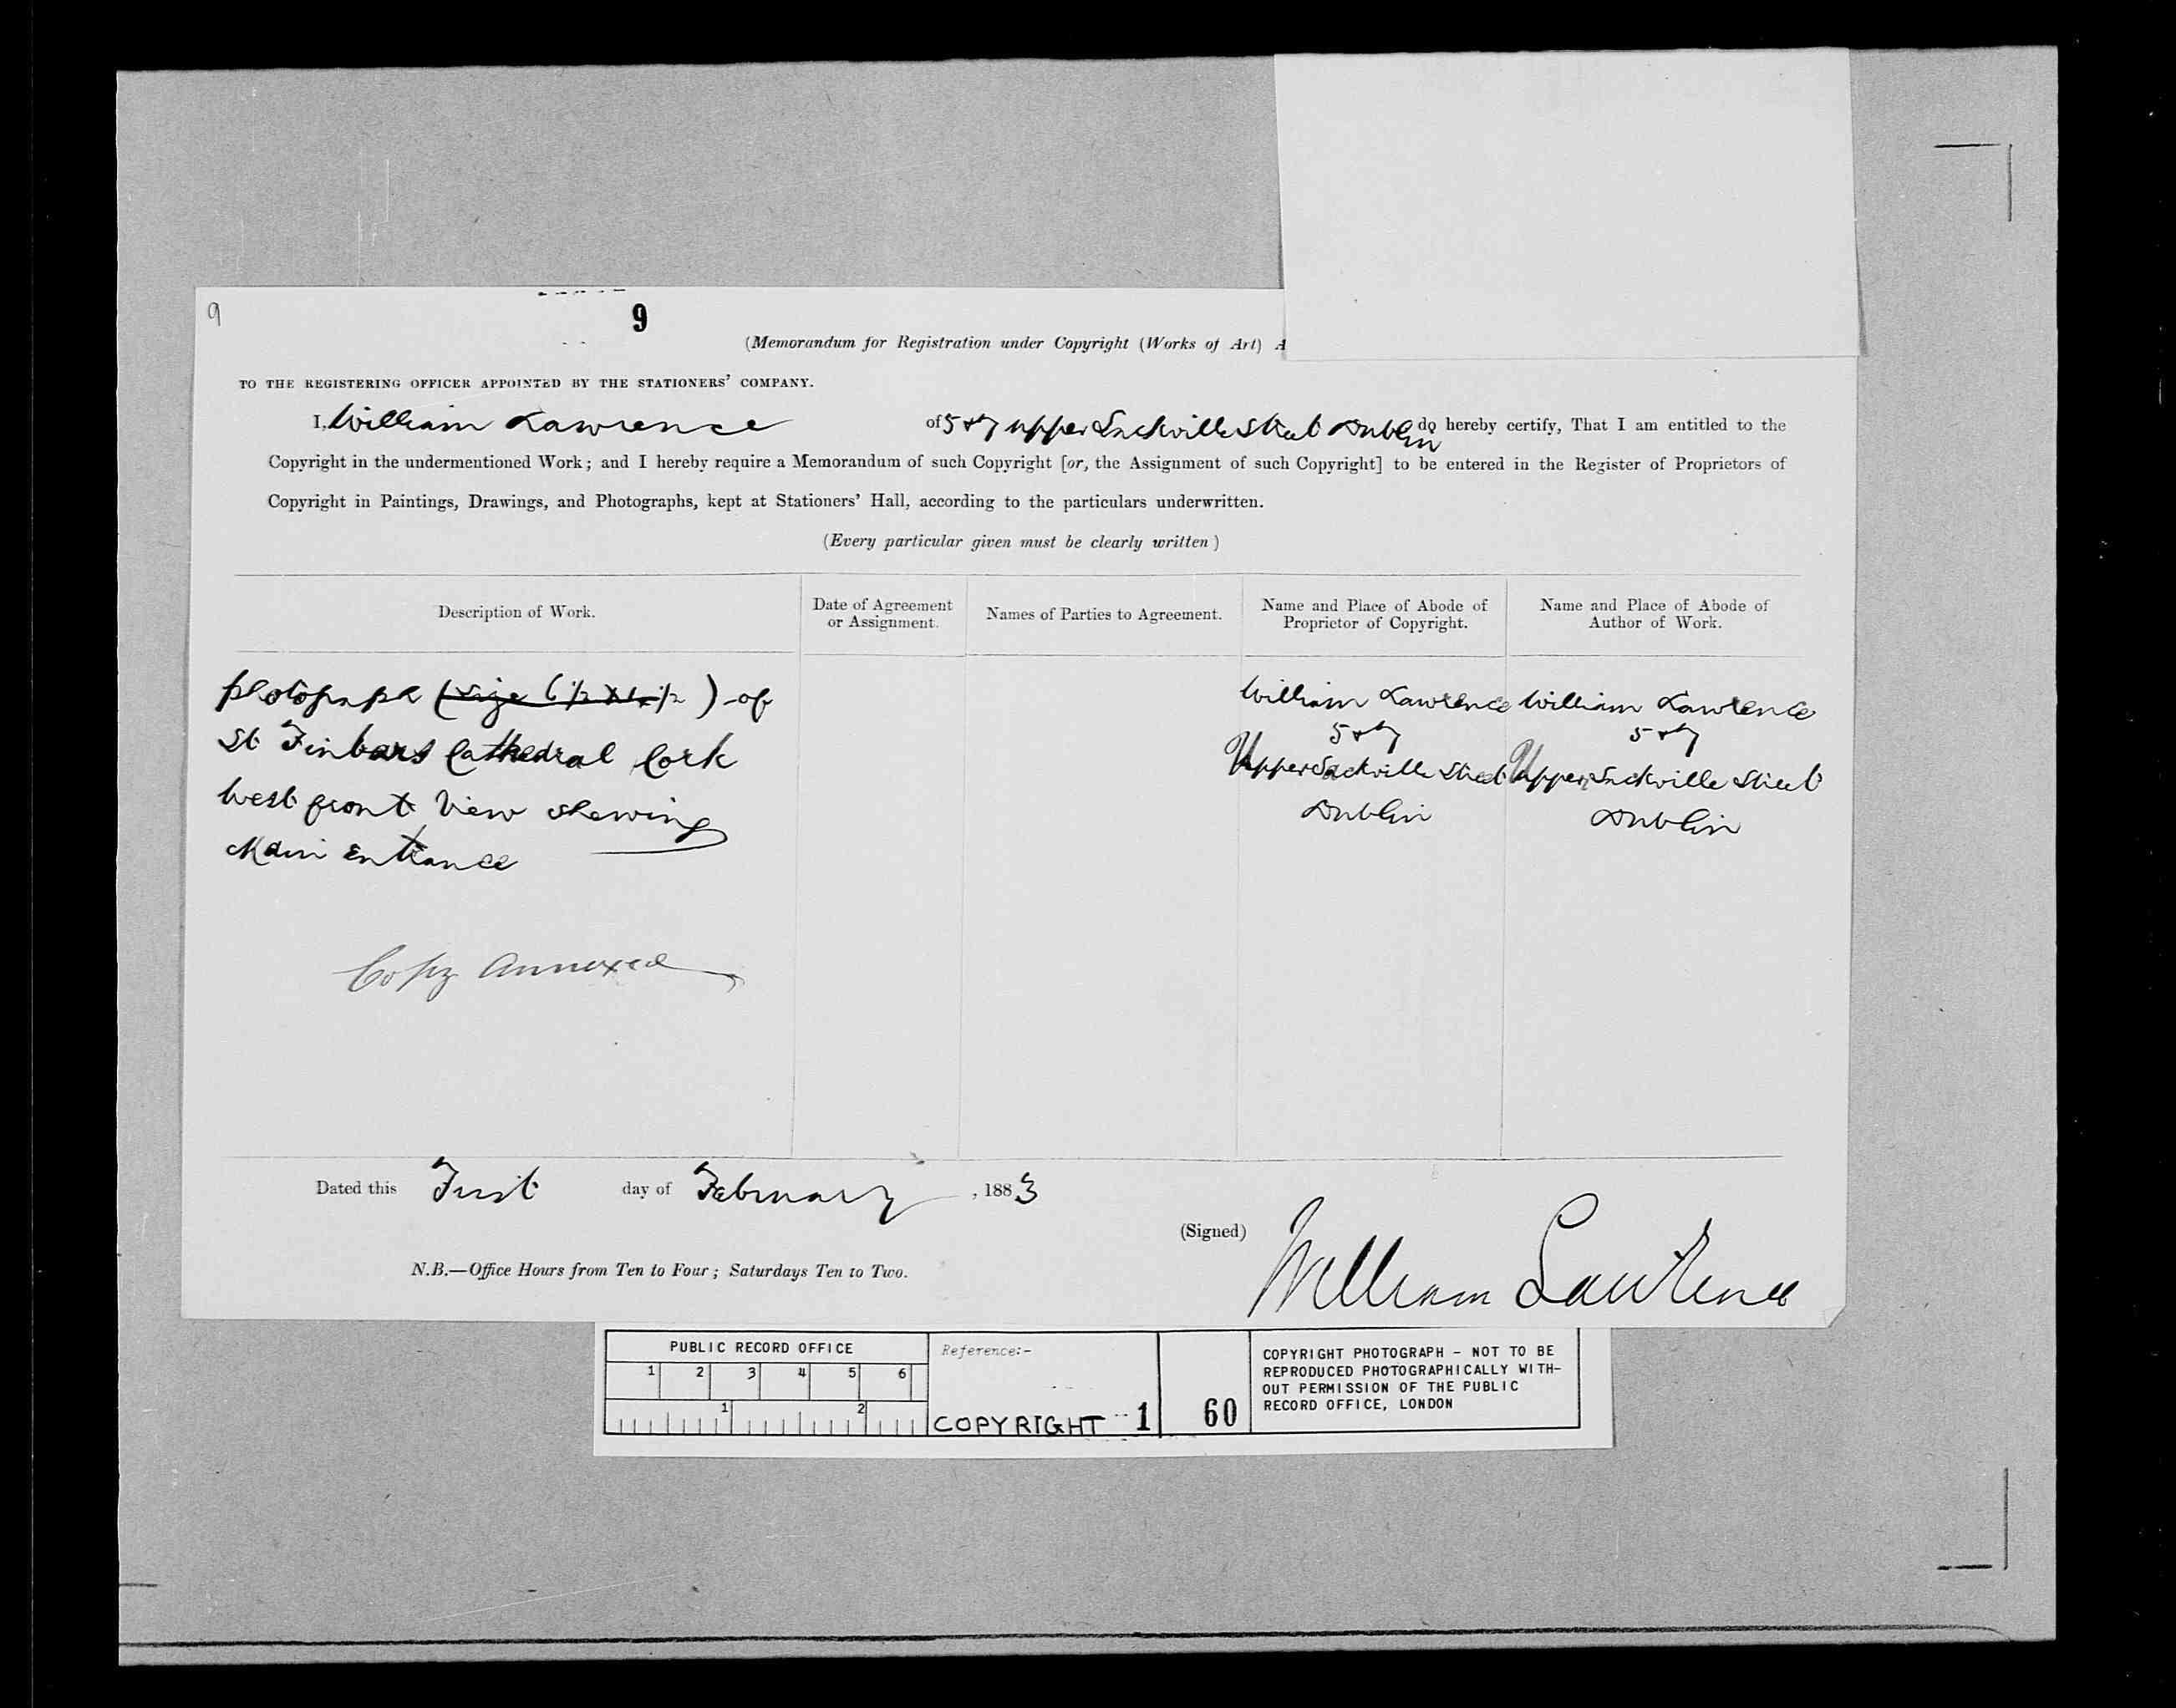 9
9
(Memorandum for Registration under Copyright (Works of Art) A
TO THE REGISTERING OFFICER APPOINTED BY THE STATIONERS' COMPANY.
I, William Lawrence of 5 & 7 Upper Sackville Street Dublin do hereby certify, That I am entitled to the
Copyright in the undermentioned Work; and I hereby require a Memorandum of such Copyright [or, the Assignment of such Copyright] to be entered in the Register of Proprietors of
Copyright in Paintings, Drawings, and Photographs, kept at Stationers' Hall, according to the particulars underwritten.
(Every particular given must be clearly written)
Description of Work.
Date of Agreement
or Assignment.
Names of Parties to Agreement.
Name and Place of Abode of
Proprietor of Copyright.
Name and Place of Abode of
Author of Work.
photograph (size 6 1/2 x 1/2) of
St Finbars Cathedral Cork
West front View shewing
Main Entrance
Copy Annexed
William Lawrence
5 & 7
Upper Sackville Street
Dublin
William Lawrence
5 & 7
Upper Sackville Street
Dublin
Dated this First day of February, 1883
(Signed)
William Lawrence
N.B.—Office Hours from Ten to Four; Saturdays Ten to Two.
PUBLIC RECORD OFFICE
1 2 3 4 5 6
1 2
Reference:-
COPYRIGHT 1
60
COPYRIGHT PHOTOGRAPH - NOT TO BE
REPRODUCED PHOTOGRAPHICALLY WITH-
OUT PERMISSION OF THE PUBLIC
RECORD OFFICE, LONDON